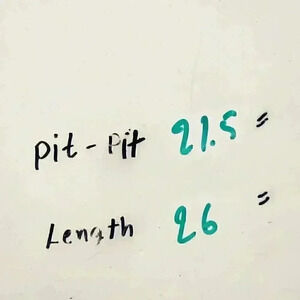 pit - pit 21.5 "
Length 26 "